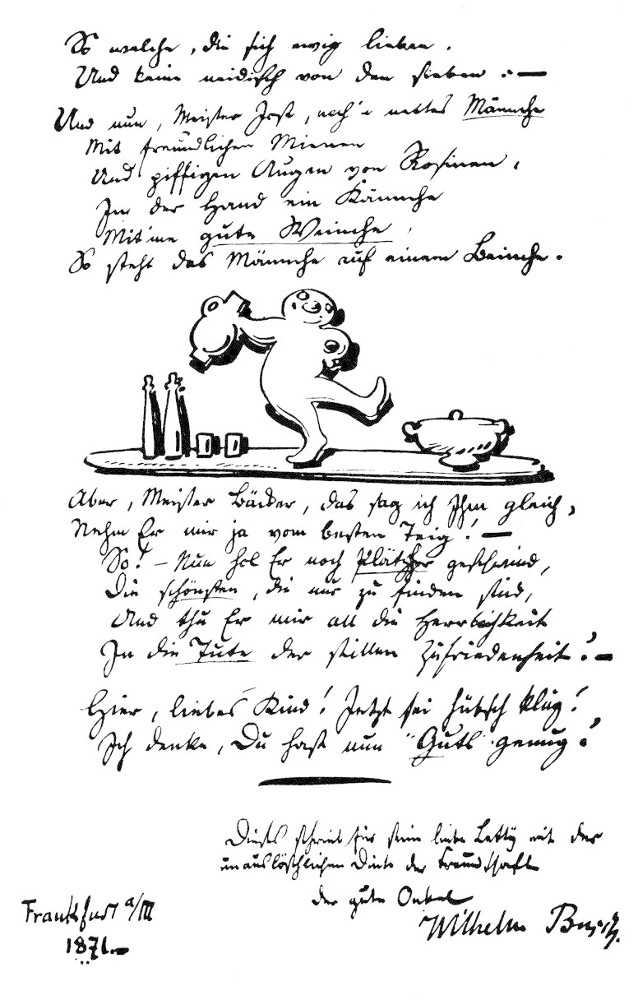 So welche, die sich ewig lieben.
Und keine neidisch von den sieben. —
Und nun, Meister Jost, noch'n nettes Männche
Mit freundlichen Mienen
Und pfiffigen Augen von Rosinen,
In der Hand ein Kännche
Mit'me gute Weinche,
So steht das Männche auf einem Beinche.
Aber, Meister Bäcker, das sag ich Ihm gleich,
Nehm Er mir ja vom besten Teig! —
So! — Nun hol Er noch Plätzher geschwind,
Die schönsten, die nur zu finden sind,
Und thu Er mir all die Herrlichkeit
In die Tute der stillen Zufriedenheit! —
Hier, liebes Kind! Jetzt sei hübsch klug!
Ich denke, Du hast nun "Guts" genug!
Dieses schrieb für seine liebe Letty mit der
unauslöschlichen Dinte der Freundschaft
der gute Onkel
Wilhelm Busch.
Frankfurt a/M
1871.